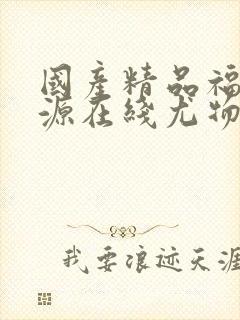 國產精品福
源在綫尤物
我要浪迹天涯